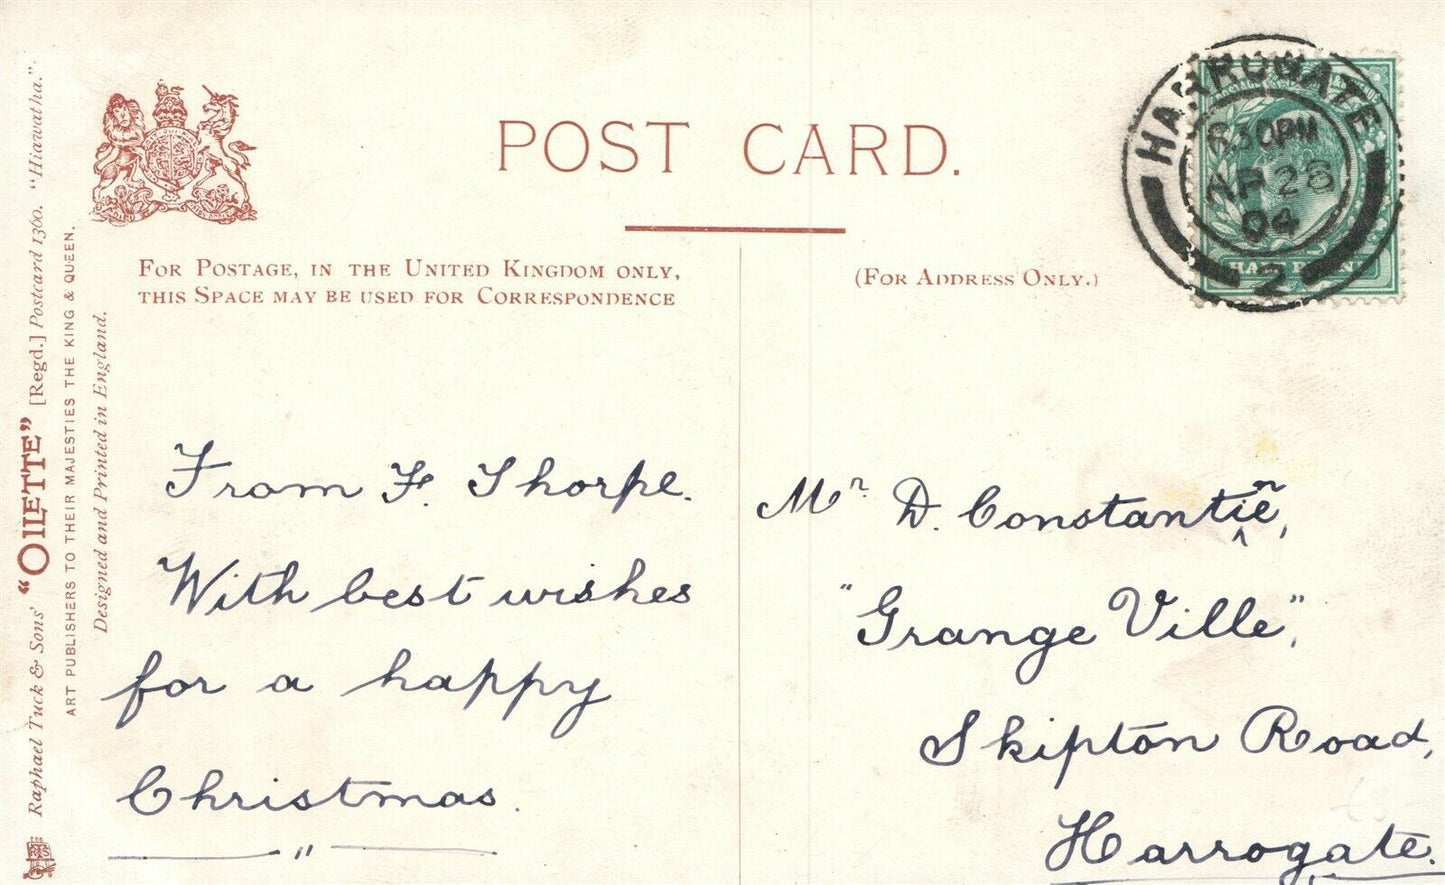 POST CARD.
FOR POSTAGE, IN THE UNITED KINGDOM ONLY,
THIS SPACE MAY BE USED FOR CORRESPONDENCE
(FOR ADDRESS ONLY.)
HARROGATE
630PM
AP 28
04
2
HALF PENNY
Raphael Tuck & Sons' "OILETTE" [Regd.] Postcard 1360. "Hiawatha."
ART PUBLISHERS TO THEIR MAJESTIES THE KING & QUEEN.
Designed and Printed in England.
From F. Thorpe.
With best wishes
for a happy
Christmas.
Mr. D. Constantine,
"Grange Ville",
Skipton Road,
Harrogate.